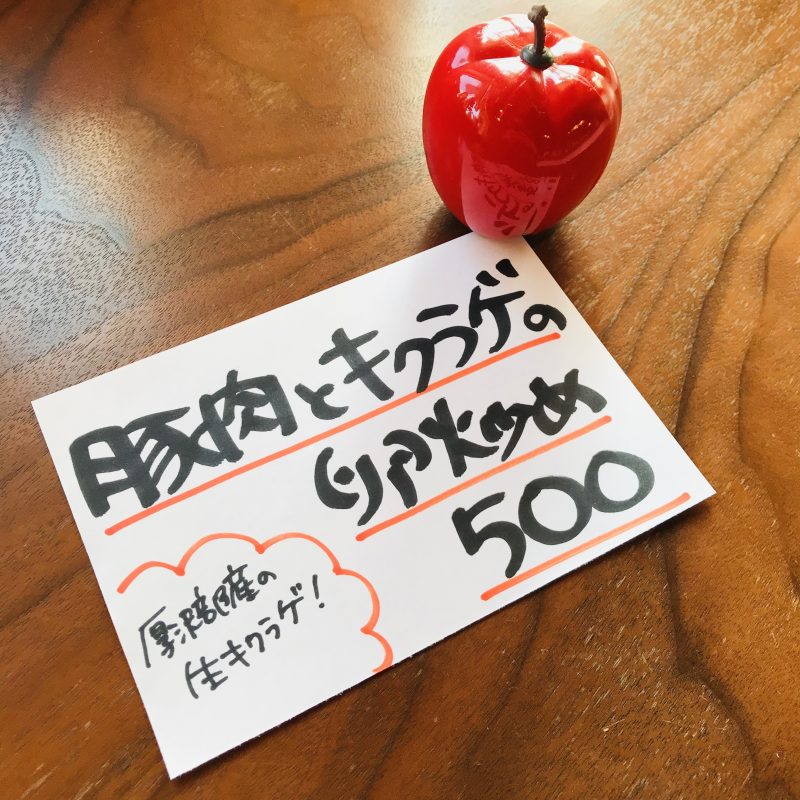 豚肉とキクラゲの
卵炒め
500
厚沢部産の
生キクラゲ！